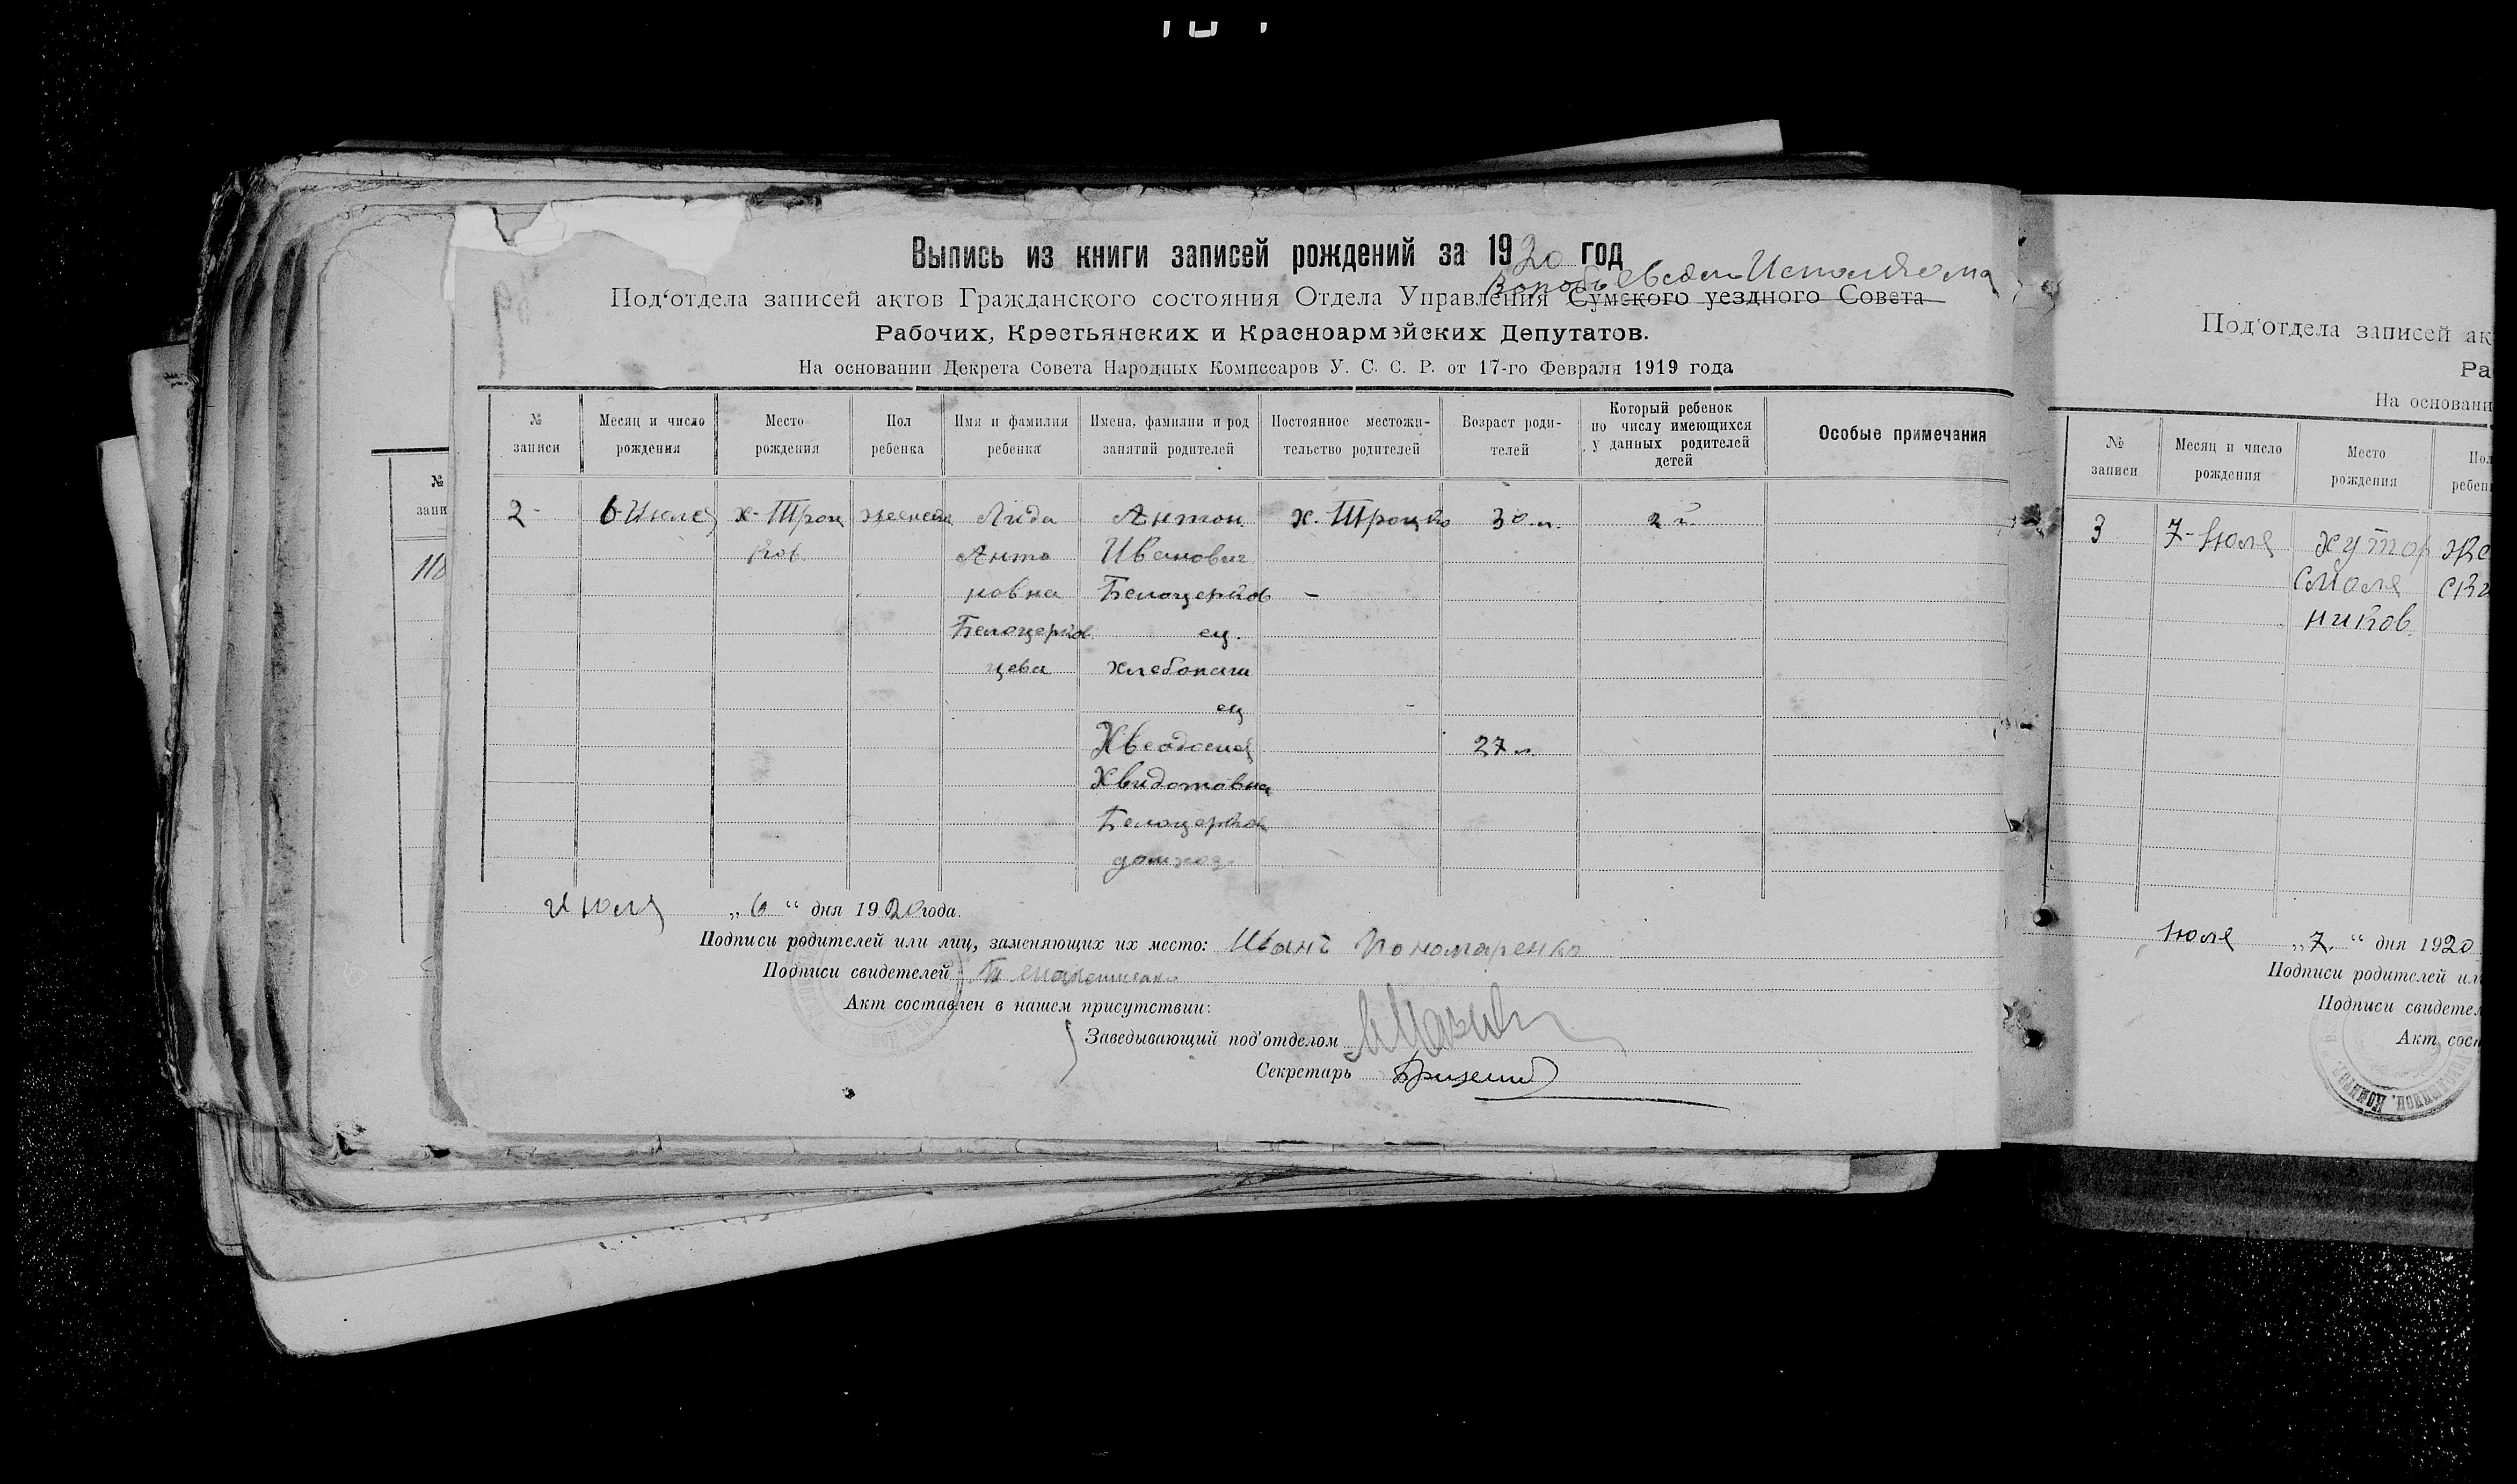 Выпись из книги записей рождений за 1920 год
Под'отдела записей актов Гражданского состояния Отдела Управления Сумского уездного Совета
Исполкома
Рабочих, Крестьянских и Красноармэйских Депутатов.
На основании Декрета Совета Народных Комиссаров У. С. С. Р. от 17-го Февраля 1919 года
№ записи
Месяц и число рождения
Место рождения
Пол ребенка
Имя и фамилия ребенка
Имена, фамилии и род занятий родителей
Постоянное местожительство родителей
Возраст родителей
Который ребенок по числу имеющихся у данных родителей детей
Особые примечания
2
6 Июля
х. Троц
ков
женск
Лида
Анто
новна
Белоцерков
цева
Антон
Иванович
Белоцерков
ец.
хлебопаш
ец
Хведосия
Хвидотовна
Белоцерков
домхоз.
х. Троцко
30 л.
27 л.
2й
Июля „6“ дня 1920 года.
Подписи родителей или лиц, заменяющих их место: Иванъ Пономаренко
Подписи свидетелей
Акт составлен в нашем присутствии:
Заведывающий под'отделом
Секретарь
№
запи
118
Под'отдела записей ак
Ра
На основани
№ записи
Месяц и число рождения
Место рождения
Пол
ребен
3
7-Июля
хутор
Смоля
ников.
же
ск
Июля „7.“ дня 1920
Подписи родителей ил
Подписи свидетел
Акт сост